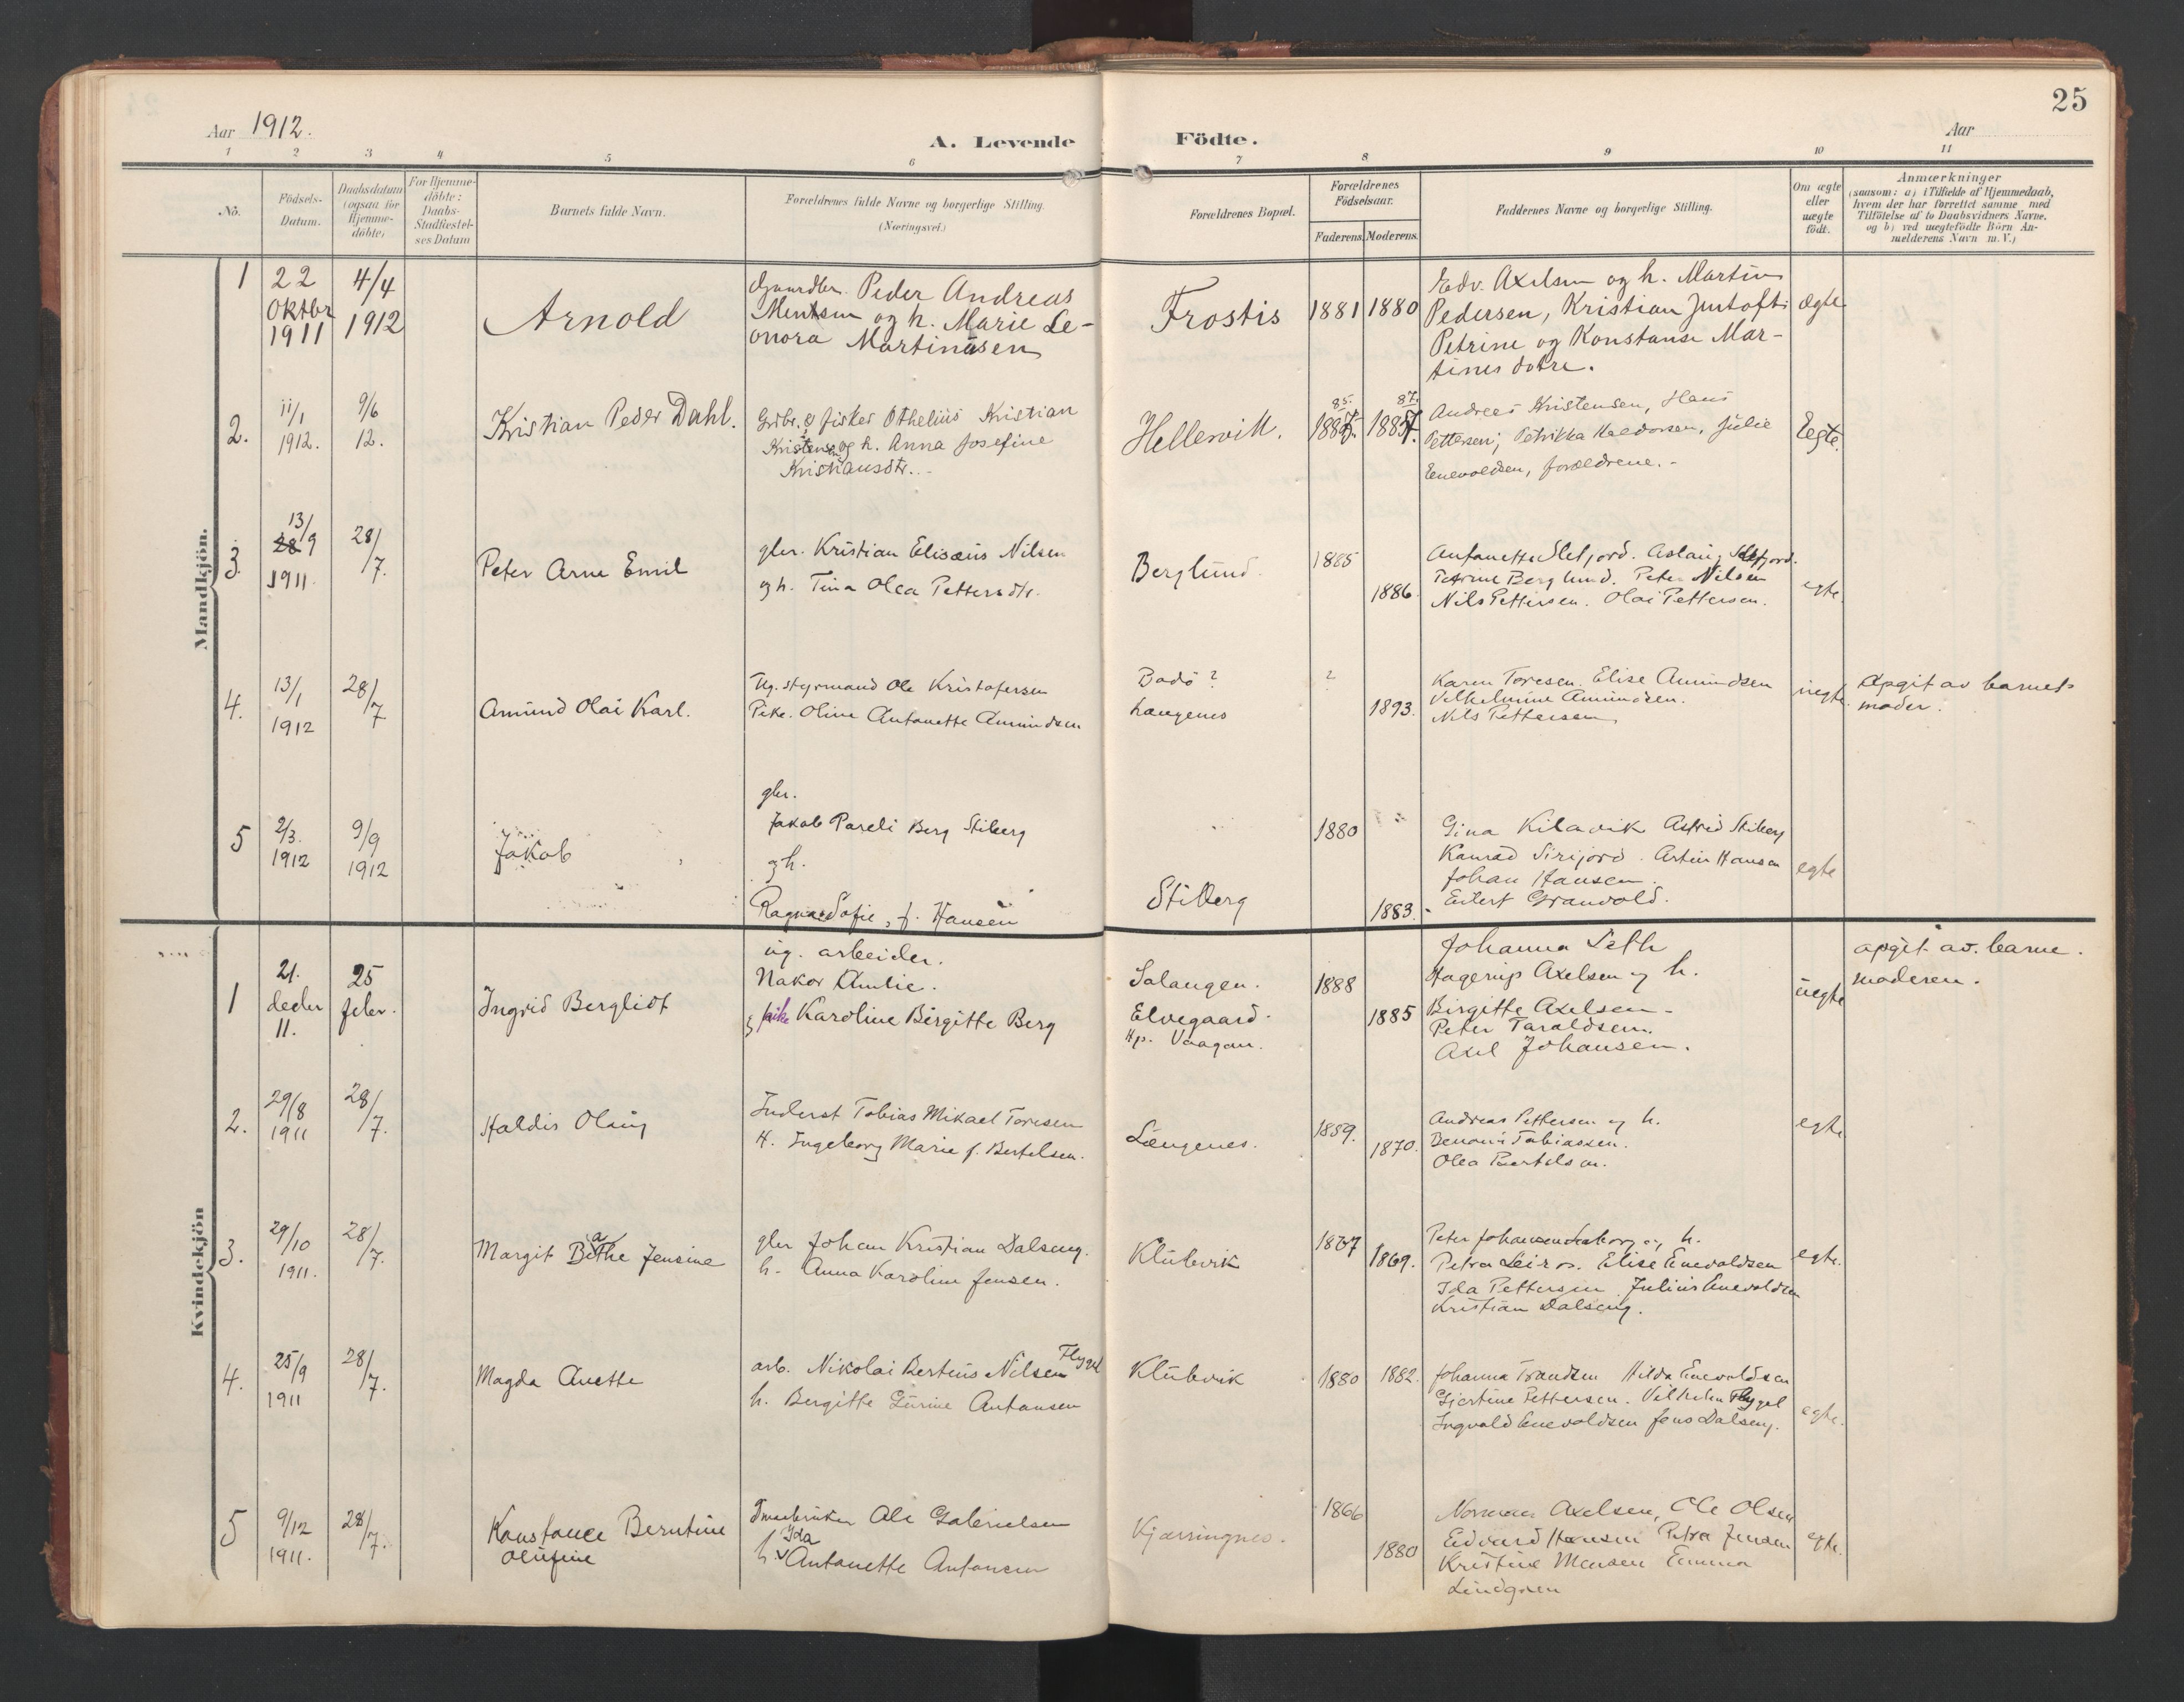 25
Aar 1912.
A. Levende Födte.
Aar
1 2 3 4 5 6 7 8 9 10 11
No.
Födsels-
Datum.
Daabsdatum
(ogsaa for
Hjemme-
döbte)
For Hjemme-
döbte:
Daabs-
Stadfæstel-
ses Datum
Barnets fulde Navn.
Forældrenes fulde Navne og borgerlige Stilling.
(Næringsvei.)
Forældrenes Bopæl.
Forældrenes
Födselsaar.
Faderens. Moderens.
Faddernes Navne og borgerlige Stilling.
Om ægte
eller
uægte
födt.
Anmærkninger
(saasom: a) i Tilfælde af Hjemmedaab,
hvem der har forrettet samme med
Tilföielse af to Daabsvidners Navne,
og b) ved uægtefödte Börn An-
melderens Navn m. V.)
Mandkjön.
1
22
Oktbr
1911
4/4
1912
Arnold
Gaardbr. Peder Andreas
Mentsen og h. Marie Le-
onora Martinusen
Frostis
1881
1880
Edv. Axelsen og h. Martin
Pedersen, Kristian
Petrine og Konstanse Mar-
tines datre.
ægte
2.
11/1
1912.
9/6
12.
Kristian Peder Dahl.
Grbr. & fisker Othelius Kristian
Kristensen og h. Anna Josefine
Kristiansdtr.
Hellervik.
85.
87.
Andreas Kristensen, Hans
Pettersen; Petrikka Haldorsen, Julie
Enevoldsen, forældrene.
Eegte.
3.
13/
28 9
1911.
28/
7.
Peter Arne Emil
gbr. Kristian Elisæus Nilsen
og h. Tina Olea Pettersdtr.
Berglund.
1885
1886.
Antonette Slefjord. Aslaug Slefjord.
Petrine Berglund. Peter Nilsen
Nils Pettersen. Olai Pettersen.
egte.
4.
13/1
1912
28/
7
Amund Olai Karl.
Ug. styrmand Ole Kristofersen
Pike. Oline Antonette Amundsen
Bodö?
Langenes
?
1893.
Karen Toresen. Elise Amundsen
Vilhelmine Amundsen.
Nils Pettersen
uegte.
Opgit av barnets
moder.
5
2/3.
1912
9/9
1912
Jakob
gbr.
Jakob Pareli Berg Stiberg
og h.
Ragna Sofie, f. Hansen
Stiberg
1880
1883.
Gina Kilavik Astrid Stiberg
Konrad Sirijord. Artur Hansen
Johan Hansen.
Eilert Granvold.
egte
Kvindekjön
1
21.
decbr
11.
25
febr.
Ingrid Bergliot
ug. arbeider.
Nakor Amlie.
& pike Karoline Birgitte Berg
Salangen.
Elvegaard.
Hp. Vaagan.
1888
1885
Johanna Seth
Hagerup Axelsen og h.
Birgitte Axelsen
Peter Taraldsen.
Axel Johansen.
uegte
opgit av. barne.
moderen.
2.
29/8
1911
28/
7.
Haldis Olaug
Inderst Tobias Mikael Toresen
H. Ingeborg Marie f. Bertelsen.
Langenes.
1859.
1870.
Andreas Pettersen og h.
Benoni Tobiassen.
Olea Bertelsen.
egte
3.
29/10
1911.
28/
7.
Margit Beathe Jensine
gbr Johan Kristian Dalseng.
h. Anna Karoline Jensen.
Klubvik
1867
1869.
Peter Johansen og h.
Petra Leiros. Elise Enevoldsen
Ida Pettersen. Julius Enevoldsen
Kristian Dalseng.
egte.
4.
25/9
1911
28/
7.
Magda Anette
arb. Nikolai Berteus Nilsen Flygel
h. Bergitte Gurine Antonsen
Klubvik
1880
1882.
Johanna Trondsen Hilda Enevoldsen
Gjertine Pettersen. Vilhelm Flygel
Ingvald Enevoldsen Jens Dalseng.
egte.
5
9/12
1911.
28/
7.
Konstance Berntine
Olufine
Ole Gabrielsen
h. Ida Antonette Antonsen
Kjærringnes.
1866
1880
Norman Axelsen, Ole Olsen
Edvard Hansen Petra Jensen
Kristine Monsen Emma
Lindgren
egte.